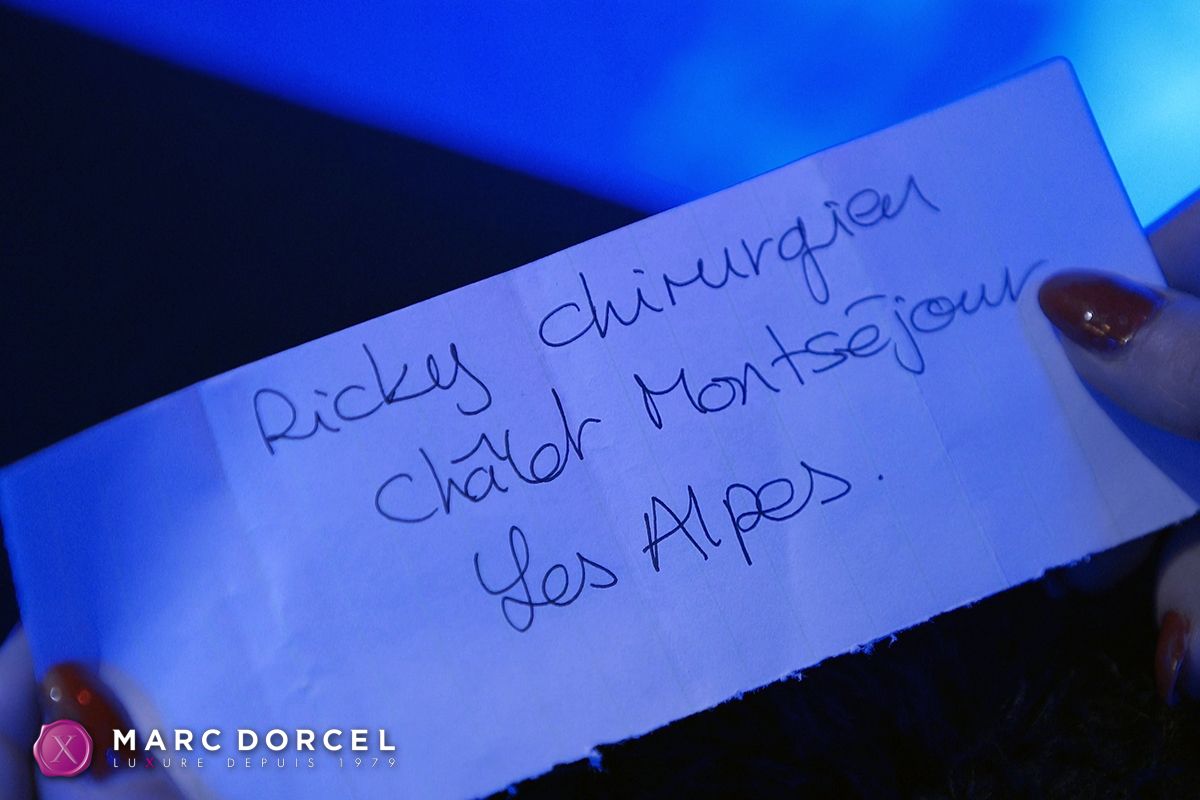 Ricky chirurgien
châlet Montséjour
Les Alpes.
X MARC DORCEL
LUXURE DEPUIS 1979